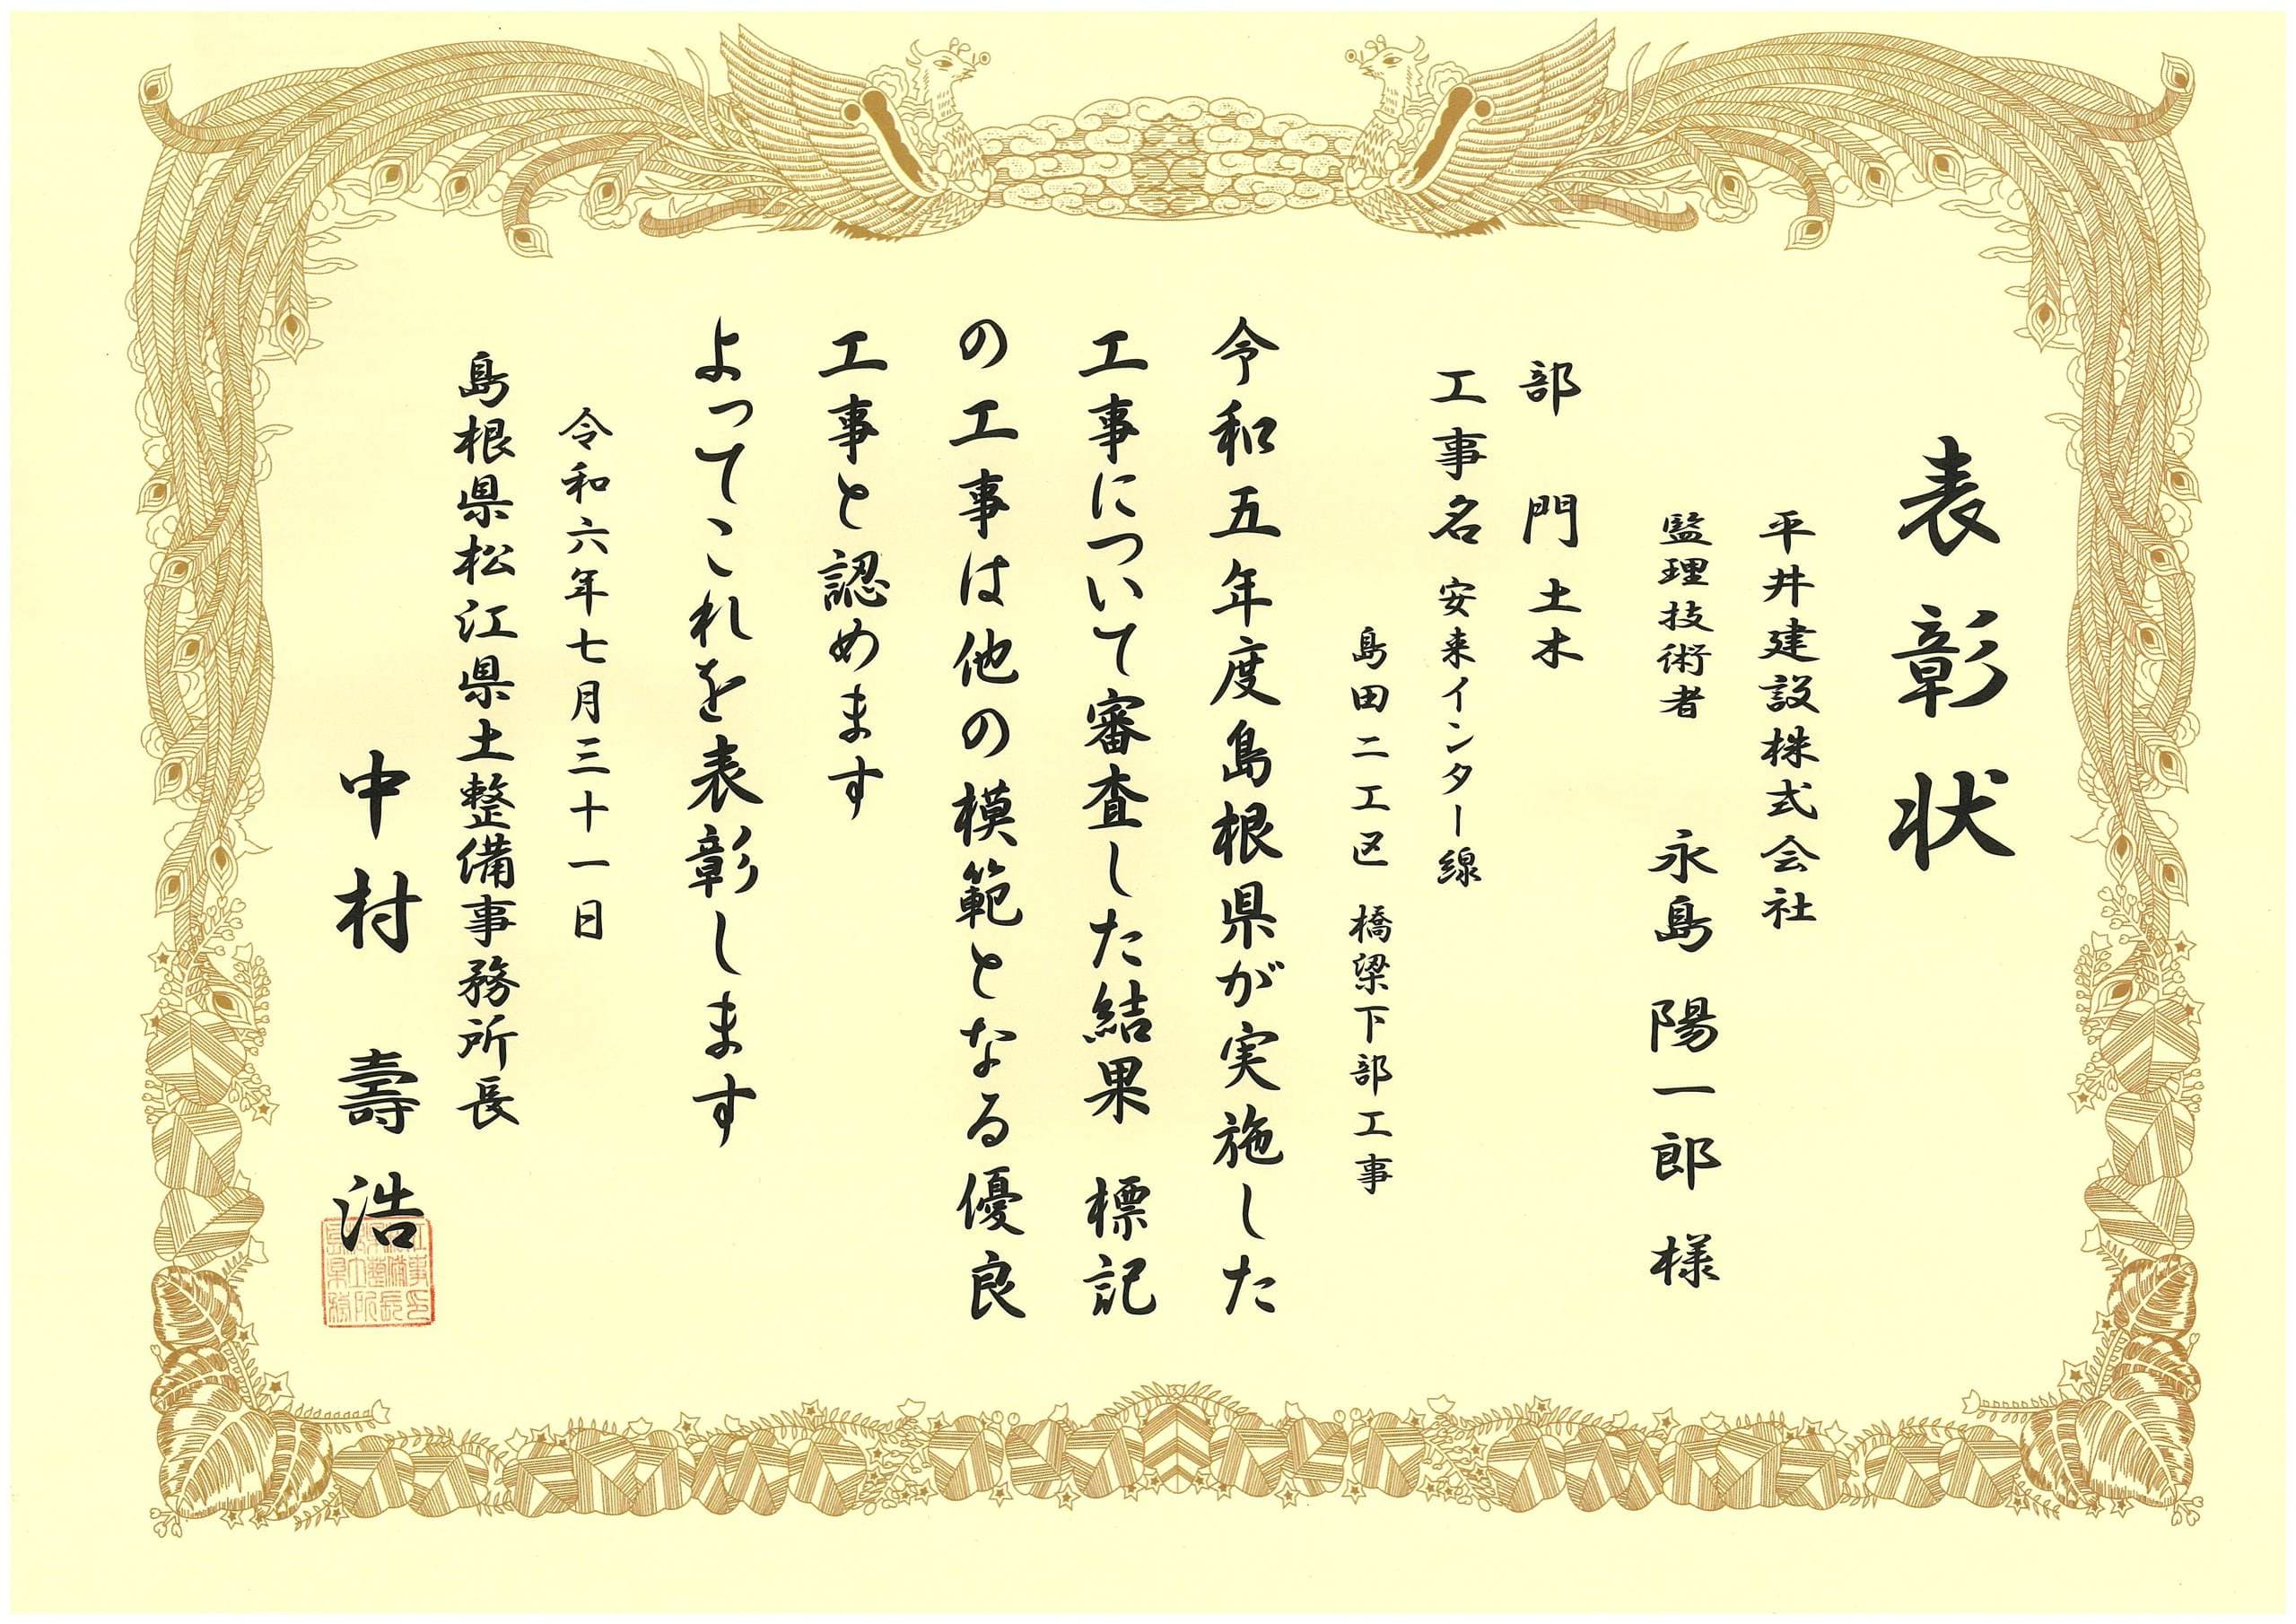 表彰状
平井建設株式会社
監理技術者 永島 陽一郎 様
部門 土木
工事名 安来インター線
島田二工区 橋梁下部工事
令和五年度島根県が実施した
工事について審査した結果 標記
の工事は他の模範となる優良
工事と認めます
よってこれを表彰します
令和六年七月三十一日
島根県松江県土整備事務所長
中村 壽浩